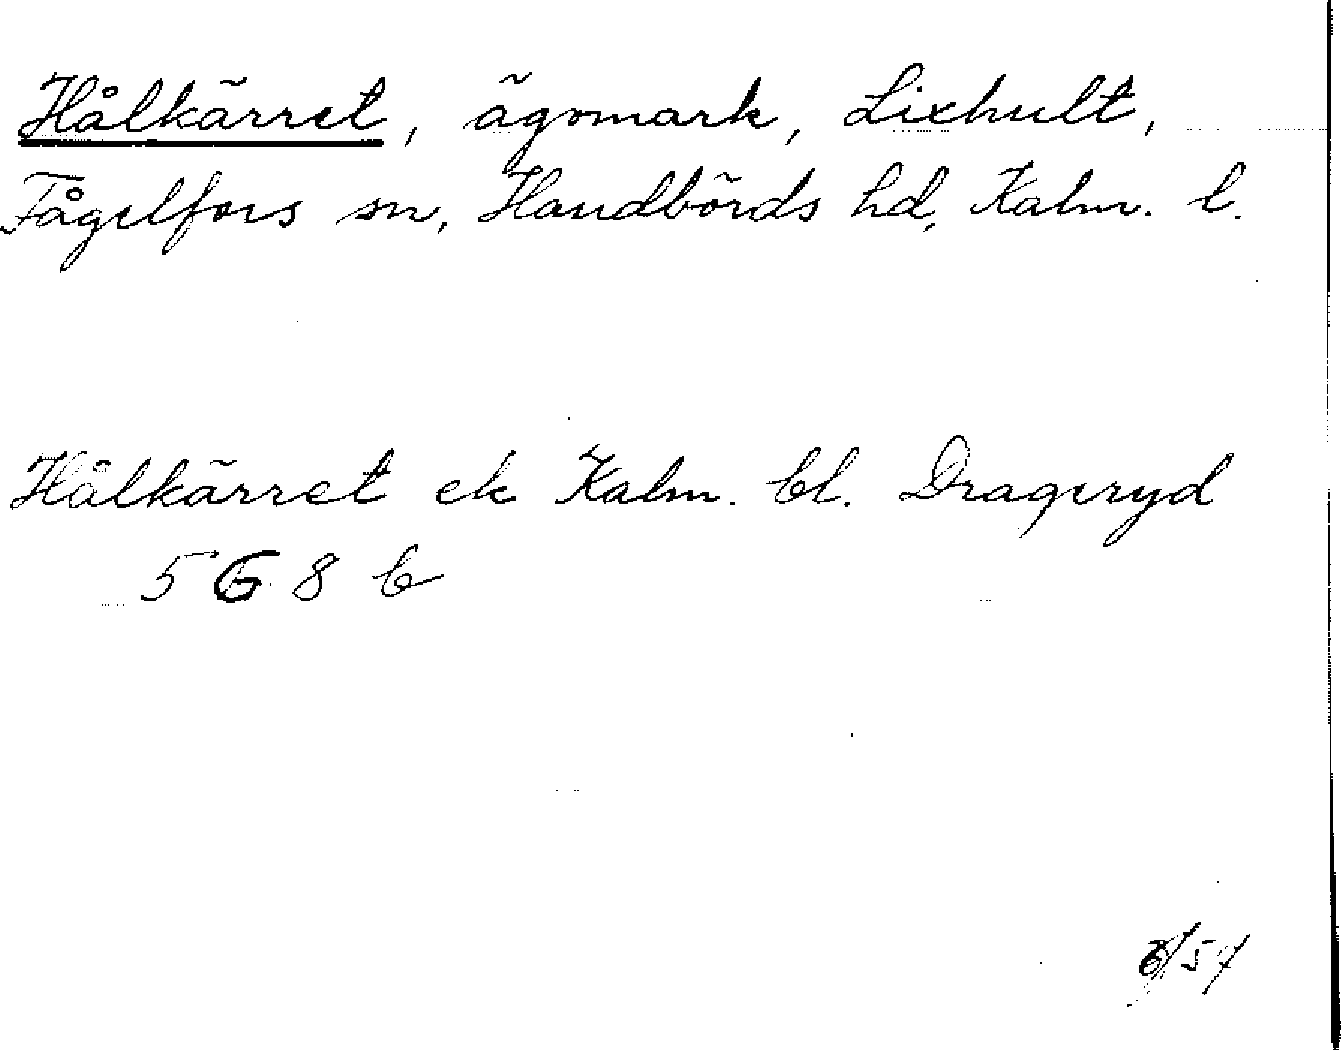 Hålkärret, ägomark, Lixhult,
Fågelfors sn, Handbörds hd, Kalm. l.
Hålkärret ek Kalm. bl. Drageryd
5 G 8 b